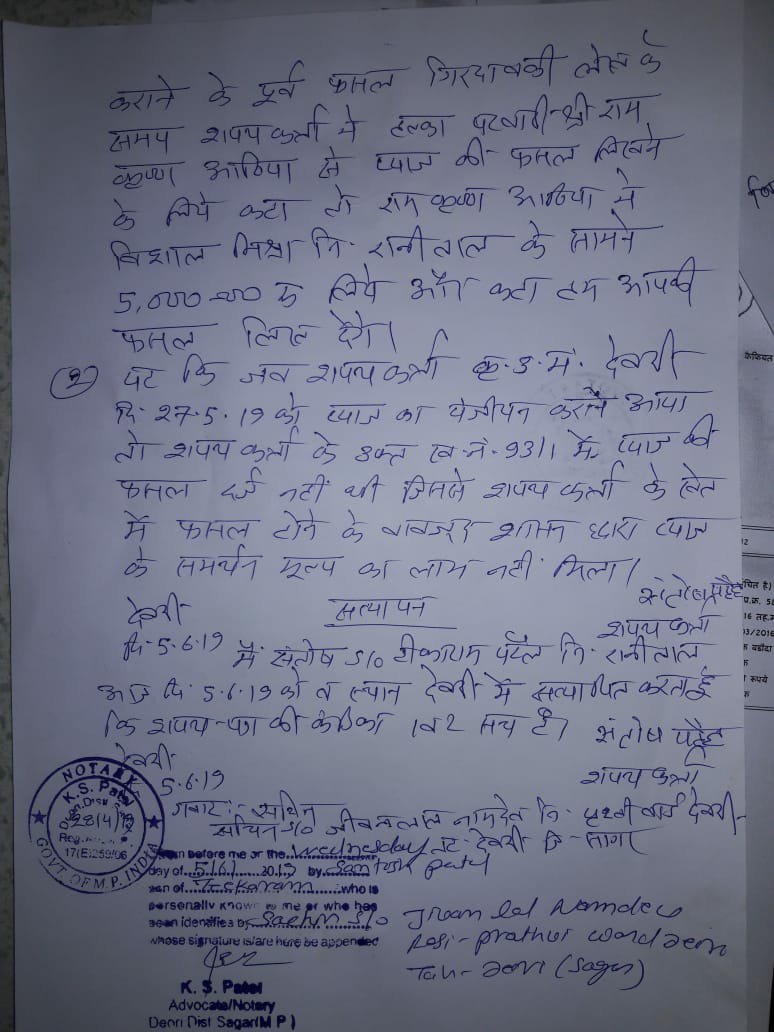 कराने के पूर्व फसल गिरदावली लेख के
समय शपथकर्ता ने हल्का पटवारी श्री राम
कृष्ण आठिया से प्याज की फसल लिखने
के लिये कहा तो राम कृष्ण आठिया ने
विशाल मिश्रा नि. रानीताल के सामने
5,000=00 रू लिये और कहा हम आपकी
फसल लिख देंगे।
(2) यह कि जब शपथकर्ता कृ. उ. मं. देवरी
दि. 27.5.19 को प्याज का पंजीयन कराने आया
तो शपथकर्ता के उक्त ख. नं. 93/1 में प्याज की
फसल दर्ज नहीं थी जिससे शपथकर्ता के खेत
में फसल होने के बावजूद शासन द्वारा प्याज
के समर्थन मूल्य का लाभ नहीं मिला।
देवरी सत्यापन संतोष पटेल
दि. 5.6.19 शपथकर्ता
मैं संतोष S/o टीकाराम पटेल नि. रानीताल
आज दि. 5.6.19 को व स्थान देवरी में सत्यापित करता हूँ
कि शपथ-पत्र की कंडिका 1 व 2 सत्य है। संतोष पटेल
देवरी शपथकर्ता
5.6.19
गवाह :- सचिन
सचिन S/o जीवनलाल नामदेव नि. पृथ्वी वार्ड देवरी
तह. देवरी जि. सागर
NOTARY
K.S. Patel
Deori Dist.
Reg.
17(E)259/06
GOVT. OF M.P. INDIA
before me on the Wednesday
day of 5/6/ 2019 by Santosh Patel
son of Teekaram who is
personally known to me or who has
been identified by Sachin S/o Jeevan lal Namdev
whose signature is/are here be appended
Resi- prathvi ward Deori
Teh- Deori (Sagar)
K. S. Patel
Advocate/Notary
Deori Dist Sagar(M P)